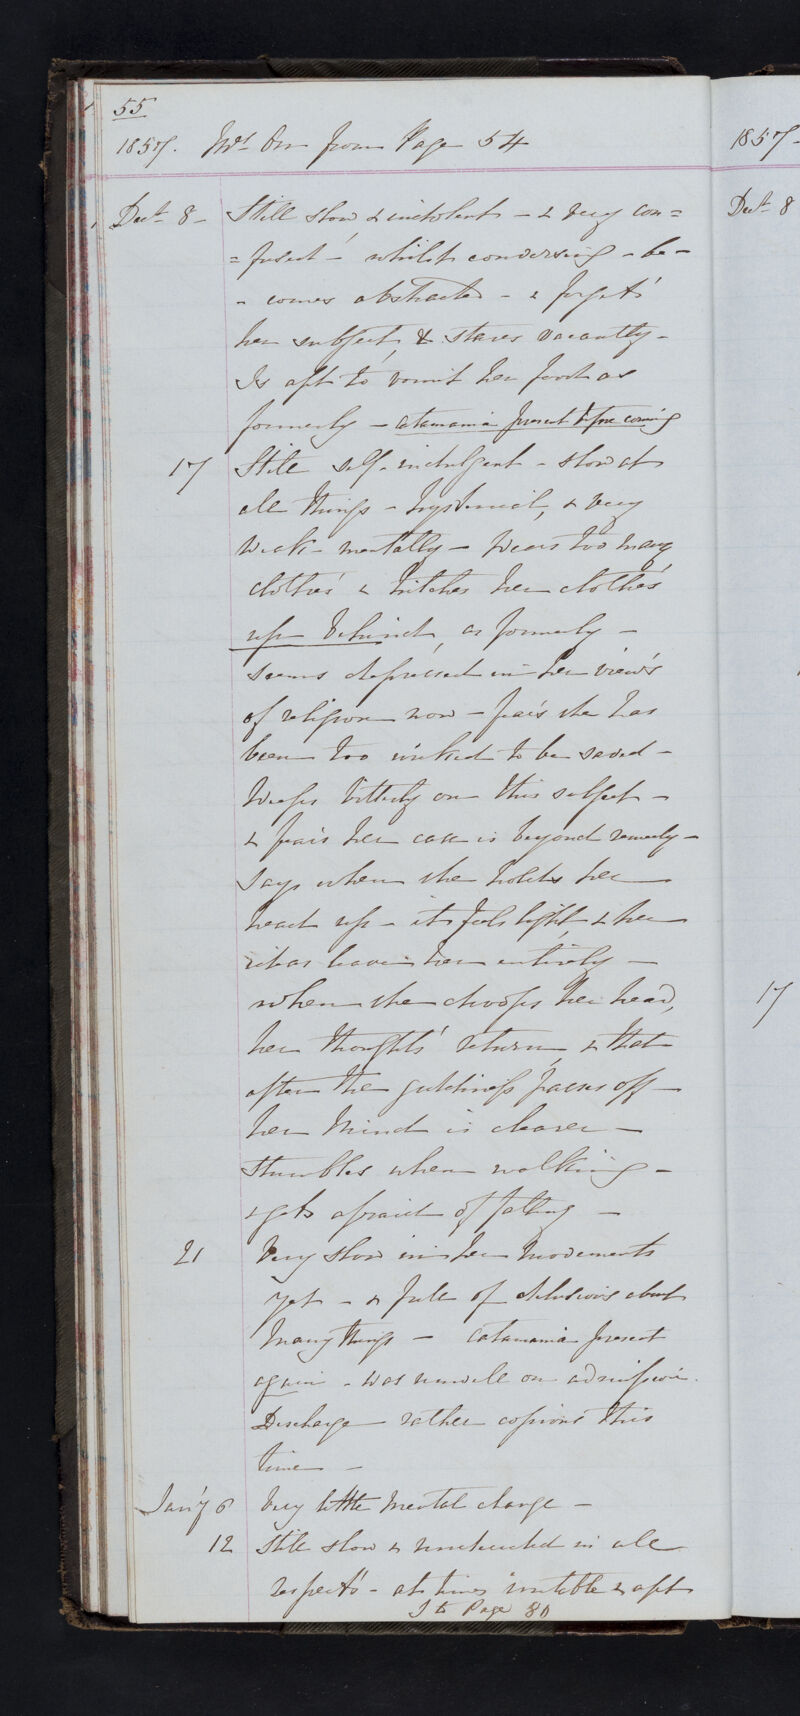 55
1857. Mrs Orr from Page 54
1857-
Decr 8 - Still slow & indolent - & very con=
Decr 8
=fused - whilst conversing - be-
- comes abstracted - & forgets
her subject, & stares vacantly -
Is apt to vomit her food as
formerly - catamania present before coming
17 Still self-indulgent - slow at
all things - hysterical, & very
weak mentally - wears too many
clothes & hitches her clothes
up behind, as formerly -
seems depressed in her views
of religion now - fears she has
been too wicked to be saved -
Weeps bitterly on this subject -
& fears her case is beyond remedy -
Says when she holds her
head up - it feels light, & her
ideas leave her entirely -
when she droops her head,
17
her thoughts return, & that
after the giddiness passes off -
her mind is clearer -
Stumbles when walking -
& gets afraid of falling -
21 Very slow in her movements
yet - & full of delusions about
many things - catamania present
again - was unwell on admission.
Discharge rather copious this
time -
Jany 6 Very little mental change -
12 Still slow & in all
respects - at times irritable & apt
to Page 80